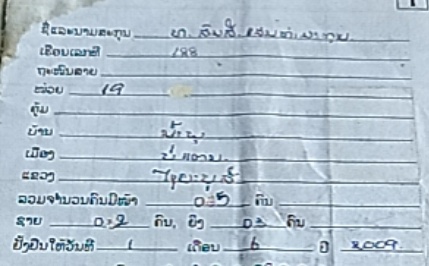 1
ຊື່ແລະນາມສະກຸນ ທ. ສົມສີ
ເຮືອນເລກທີ 188
ຖະໜົນສາຍ
ໜ່ວຍ 19
ຄຸ້ມ
ບ້ານ
ເມືອງ ປາກລາຍ
ແຂວງ ໄຊຍະບູລີ
ລວມຈຳນວນຄົນມີໜ້າ 05 ຄົນ
ຊາຍ 02 ຄົນ, ຍິງ 03 ຄົນ
ຢັ້ງຢືນໃຫ້ວັນທີ 1 ເດືອນ 6 ປີ 2009